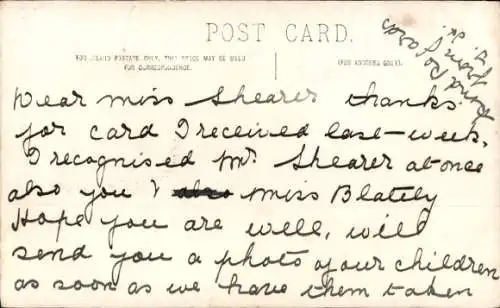 POST CARD.
FOR INLAND POSTAGE ONLY, THIS SPACE MAY BE USED
FOR CORRESPONDENCE.
(FOR ADDRESS ONLY).
Dear Miss Shearer thanks
for card I received last-week.
I recognised Mr Shearer at once
also you & also Miss Blately
Hope you are well, will
send you a photo of our children
as soon as we have them taken